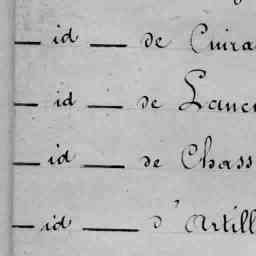 — id — de Cuira
— id — de Lance
— id — de Chass
— id — d'Artill